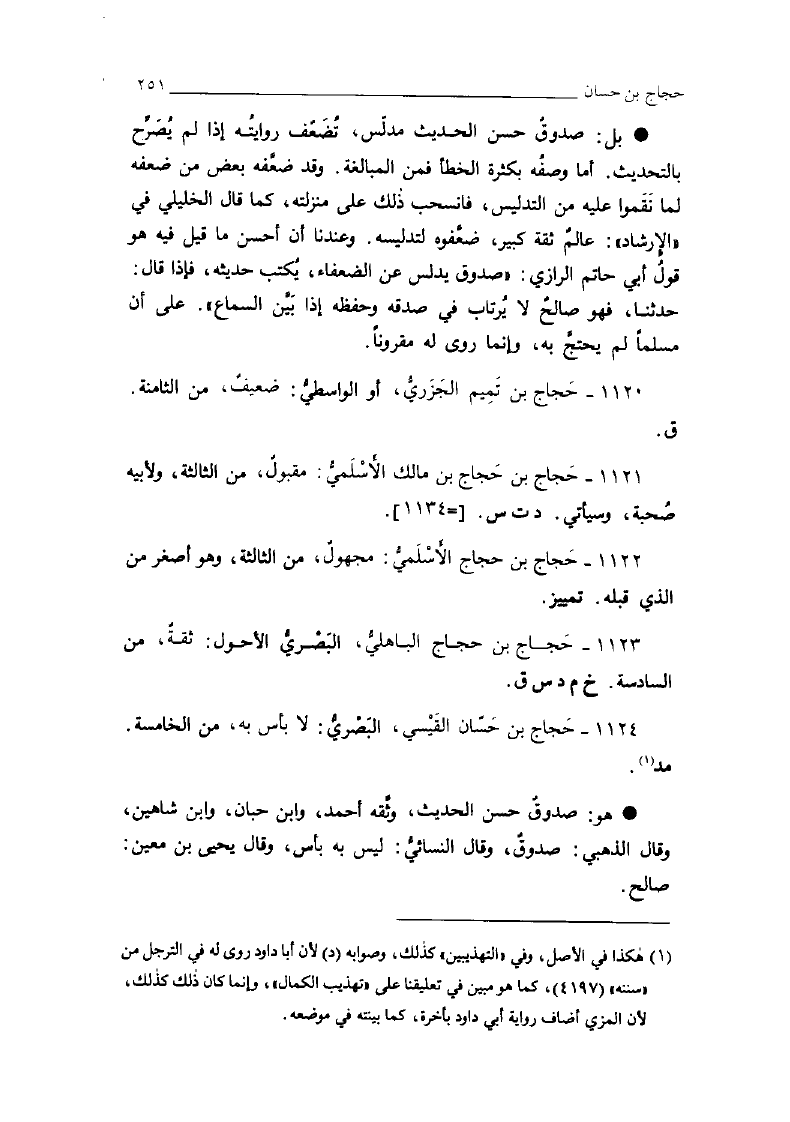 حجاج بن حسان ٢٥١
● بل: صدوقٌ حسن الحديث مدلّس، تُضَعَّف روايتُه إذا لم يُصَرِّح
بالتحديث. أما وصفُه بكثرة الخطأ فمن المبالغة. وقد ضعَّفه بعض من ضعفه
لما نَقَموا عليه من التدليس، فانسحب ذٰلك على منزلته، كما قال الخليلي في
«الإرشاد»: عالمٌ ثقة كبير، ضعَّفوه لتدليسه. وعندنا أن أحسن ما قيل فيه هو
قولُ أبي حاتم الرازي: «صدوق يدلس عن الضعفاء، يُكتب حديثه، فإذا قال:
حدثنا، فهو صالحٌ لا يُرتاب في صدقه وحفظه إذا بَيَّن السماع». على أن
مسلماً لم يحتجَّ به، وإنما روى له مقروناً.
١١٢٠ ـ حَجاج بن تَمِيم الجَزَريُّ، أو الواسطيُّ: ضعيفٌ، من الثامنة.
ق.
١١٢١ ـ حَجاج بن حَجاج بن مالك الأَسْلَميُّ: مقبولٌ، من الثالثة، ولأبيه
صُحبة، وسيأتي. د ت س. [=١١٣٤].
١١٢٢ ـ حَجاج بن حجاج الأَسْلَميُّ: مجهولٌ، من الثالثة، وهو أصغر من
الذي قبله. تمييز.
١١٢٣ ـ حَجاج بن حجاج الباهليُّ، البَصْريُّ الأحول: ثقةٌ، من
السادسة. خ م د س ق.
١١٢٤ ـ حَجاج بن حَسّان القَيْسي، البَصْريُّ: لا بأس به، من الخامسة.
مد(١).
● هو: صدوقٌ حسن الحديث، وثَّقه أحمد، وابن حبان، وابن شاهين،
وقال الذهبي: صدوقٌ، وقال النسائيُّ: ليس به بأس، وقال يحيى بن معين:
صالح.
(١) هٰكذا في الأصل، وفي «التهذيبين» كذلك، وصوابه (د) لأن أبا داود روى له في الترجل من
«سننه» (٤١٩٧)، كما هو مبين في تعليقنا على «تهذيب الكمال»، وإنما كان ذٰلك كذٰلك،
لأن المزي أضاف رواية أبي داود بأخرة، كما بينته في موضعه.